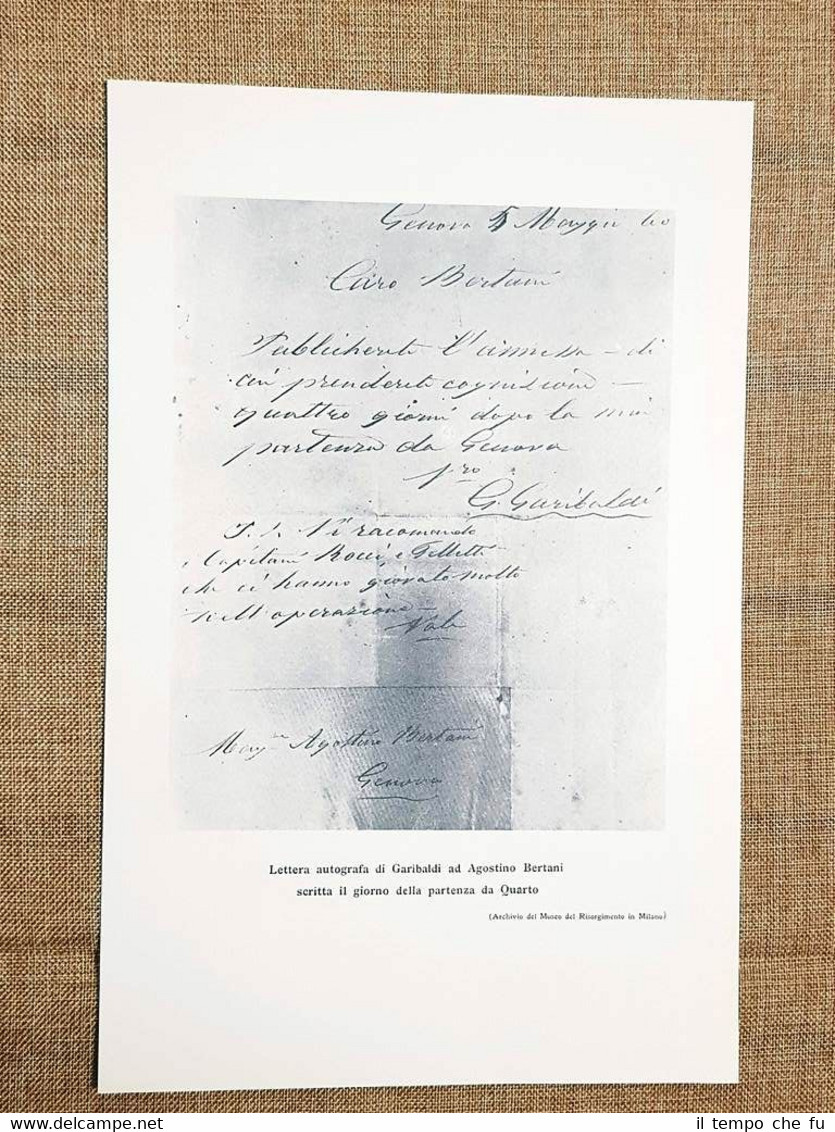 Genova 5 Maggio 60
Caro Bertani
Publicherete l'annessa - di
cui prenderete cognizione -
quattro giorni dopo la mia
partenza da Genova
G. Garibaldi
P. S. Vi racomando
i Capitani Rocci, e
che ci hanno giovato molto
nell'operazione -
Vale
Agostino Bertani
Genova
Lettera autografa di Garibaldi ad Agostino Bertani
scritta il giorno della partenza da Quarto
(Archivio del Museo del Risorgimento in Milano)
il tempo che fu